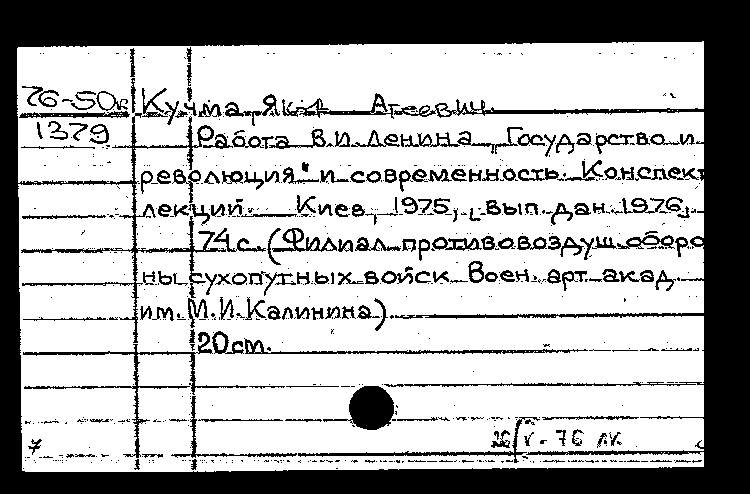 76-50к Кучма, Яков Агеевич.
1379 Работа В.И.Ленина „Государство и
революция" и современность. Конспект
лекций. Киев, 1975, [вып.дан.1976].
74 с. (Филиал противовоздуш.оборо
ны сухопутных войск Воен. арт. акад.
им. М.И.Калинина)
20 см.
7 26/V-76 лк